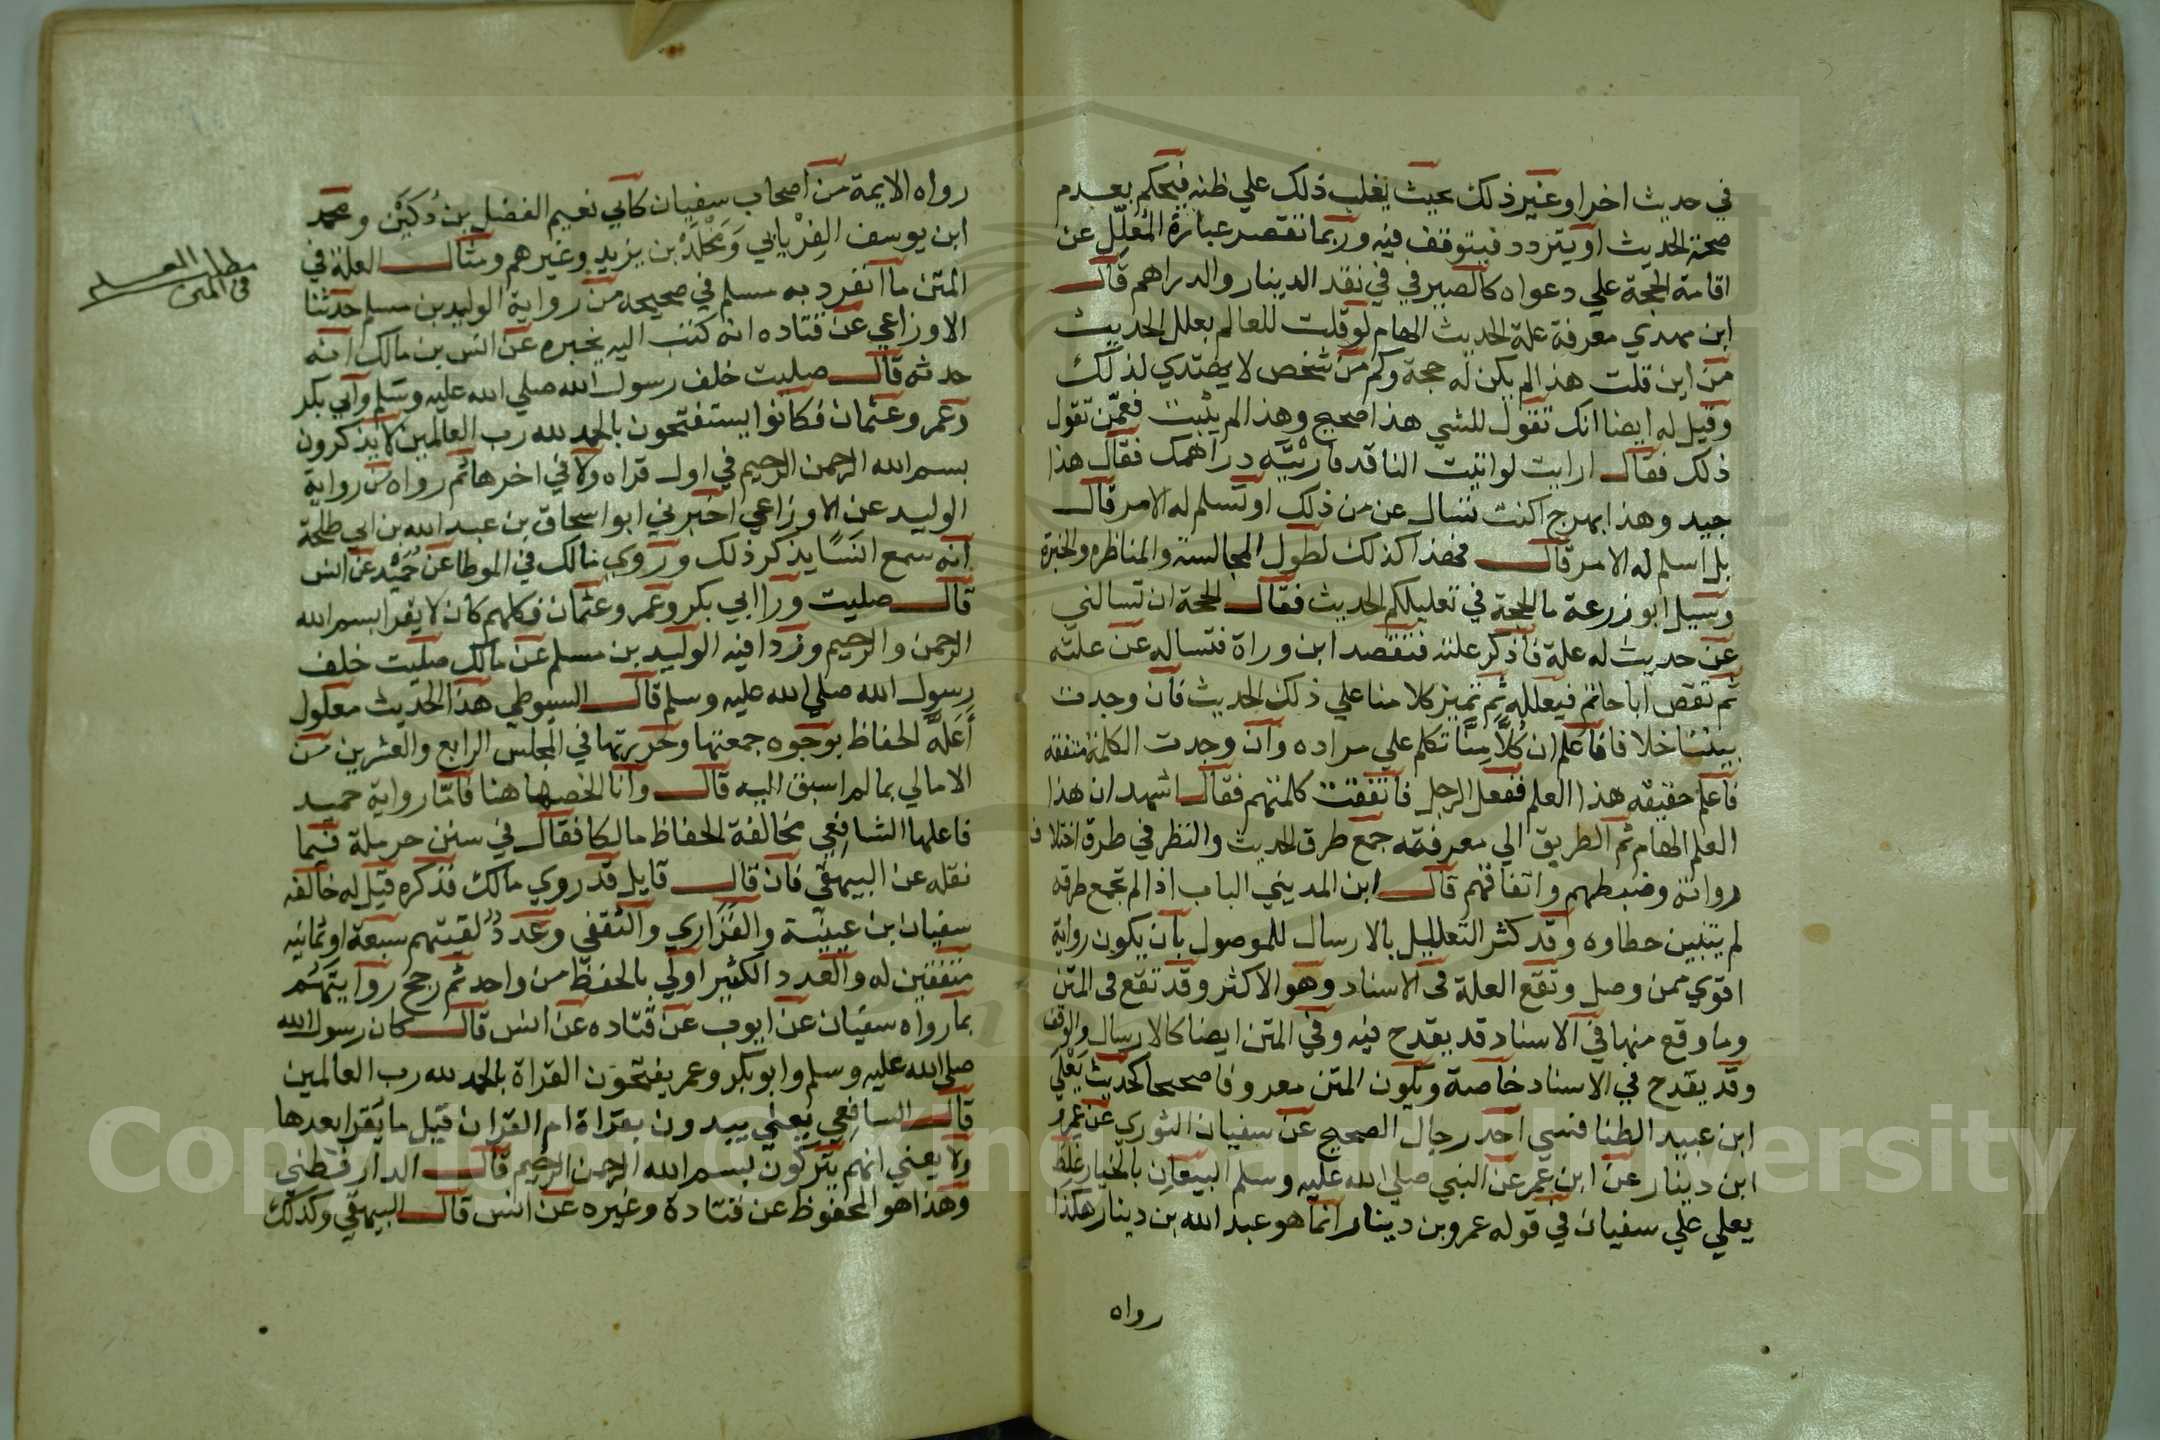 في حديث اخر او غير ذلك بحيث يغلب ذلك علي ظنه فيحكم بعدم
صحة الحديث او يتردد فيتوقف فيه وربما تقصر عبارة المُعَلِّلِ عن
اقامة الحجة علي دعواه كالصيرفي في نقد الدينار والدراهم قال
ابن مهدي معرفة علة الحديث الهام لو قلت للعالم بعلل الحديث
من اين قلت هذا لم يكن له حجة وكم من شخص لا يهتدي لذلك
وقيل له ايضا انك تقول للشي هذا صحيح وهذا لم يثبت فعمّن تقول
ذلك فقال ارايت لو اتيت الناقد فاريته دراهمك فقال هذا
جيد وهذا بهرج اكنت تسال عن من ذلك او تسلم له الامر قال
بل اسلم له الامر قال فهذا كذلك لطول المجالسة والمناظره والخبرة
وسيل ابو زرعة ما الحجة في تعليلكم الحديث فقال الحجة ان تسالني
عن حديث له علة فاذكر علته فتقصد ابن وراة فتساله عن علته
ثم تقص ابا حاتم فيعلله ثم تميز كلامنا علي ذلك الحديث فان وجدت
بيننا خلافا فاعلم ان كُلاًّ مِنَّا تكلم علي مراده وان وجدت الكلمة متفقه
فاعلم حقيقه هذا العلم ففعل الرجل فاتفقت كلمتهم فقال اشهد ان هذا
العلم الهام ثم الطريق الي معرفته جمع طرق الحديث والنظر في طرق اختلاف
رواته وضبطهم واتفاقهم قال ابن المديني الباب اذا لم تجمع طرقه
لم يتبين خطاوه وقد كثر التعليل بالارسال للموصول بان يكون رواية
اقوي ممن وصل وتقع العلة في الاسناد وهو الاكثر وقد تقع في المتن
وما وقع منها في الاسناد قد يقدح فيه وفي المتن ايضا كالارسال والوقف
وقد يقدح في الاسناد خاصة ويكون المتن معروفا صحيحا كحديث يَعْلَي
ابن عبيد الطنافسي احد رجال الصحيح عن سفيان الثوري عن عمرو
ابن دينار عن ابن عمر عن النبي صلي الله عليه وسلم البيعان بالخيار غلط
يعلي علي سفيان في قوله عمرو بن دينار انما هو عبد الله بن دينار هكذا
رواه
رواه الايمة من اصحاب سفيان كابي نعيم الفضل بن دُكَيْن ومحمد
ابن يوسف الفِرْيابي وَمَخْلَدْ بن يزيد وغيرهم ومثال العلة في
المتن ما انفرد به مسلم في صحيحه من رواية الوليد بن مسلم حدثنا
الاوزاعي عن قتاده انه كتب اليه يخبره عن انس بن مالك انه
حدثه قال صليت خلف رسول الله صلي الله عليه وسلم وابي بكر
وعمر وعثمان فكانوا يستفتحون بالحمد لله رب العالمين لا يذكرون
بسم الله الرحمن الرحيم في اول قراه ولا في اخرها ثم رواه من رواية
الوليد عن الاوزاعي اخبرني ابو اسحاق بن عبد الله بن ابي طلحة
انه سمع انسًا يذكر ذلك وروي مالك في الموطا عن حُمَيْد عن انس
قال صليت ورا ابي بكر وعمر وعثمان فكلهم كان لا يقرا بسم الله
الرحمن والرحيم وزدا فيه الوليد بن مسلم عن مالك صليت خلف
رسول الله صلي الله عليه وسلم قال السيوطي هذا الحديث معلول
أَعَلَّهُ الحفاظ بوجوه جمعتها وحررتها في المجلس الرابع والعشرين من
الامالي بما لم اسبق اليه قال وانا الخصها هنا فامّا رواية حميد
فاعلها الشافِعي بمخالفة الحفاظ مالكا فقال في سنن حرملة فيما
نقله عن البيهقي فان قال قايل قد روي مالك فذكره قيل له خالفه
سفيان بن عيينة والفَزَاري والثقفي وعدد لُقيتهم سبعة او ثمانيه
متفقين له والعدد الكثير اولي بالحفظ من واحد ثم رجح روايتهم
بما رواه سفيان عن ايوب عن قتاده عن انس قال كان رسول الله
صلي الله عليه وسلم وابو بكر وعمر يفتحون القراة بالحمد لله رب العالمين
قال الشافعي يعني يبدون بقراة ام القران قبل ما يقرا بعدها
ولا يعني انهم يتركون بسم الله الرحمن الرحيم قال الدارقطني
وهذا هو المحفوظ عن قتادة وغيره عن انس قال البيهقي وكذلك
مطلب العلم
في المتن
Copyright © King Saud University